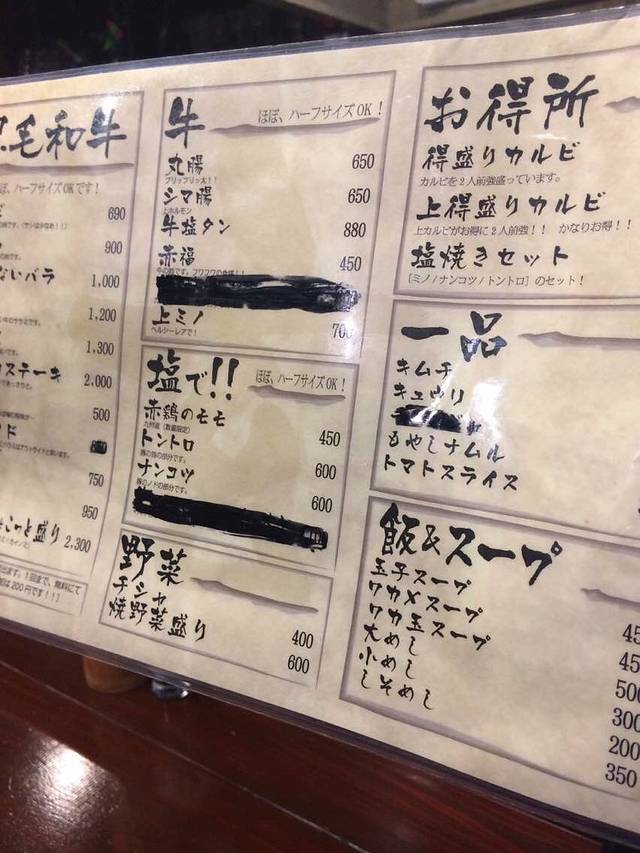 毛和牛
ハーフサイズOKです!
690
900
ないバラ
1,000
1,200
1,300
ステーキ
2,000
500
ド
750
950
こつと盛り
2,300
1回まで、無料にて
200円です!!
牛
ほぼ、ハーフサイズOK!
丸腸
プリップリッ太!!
650
シマ腸
上ホルモン
650
牛塩タン
880
赤福
450
上ミノ
ヘルシーレアで!
700
塩で!!
ほぼ、ハーフサイズOK!
赤鶏のモモ
九州産(数量限定)
450
トントロ
豚の頬の部分です。
600
ナンコツ
豚のノドの部分です。
600
野菜
チシャ
400
焼野菜盛り
600
お得所
得盛りカルビ
カルビを2人前強盛っています。
上得盛りカルビ
上カルビがお得に2人前強!! かなりお得!!
塩焼きセット
[ミノ/ナンコツ/トントロ]のセット!
一品
キムチ
キュウリ
もやしナムル
トマトスライス
飯&スープ
玉子スープ
45
ワカメスープ
45
ワカ玉スープ
500
大めし
300
小めし
200
しそめし
350